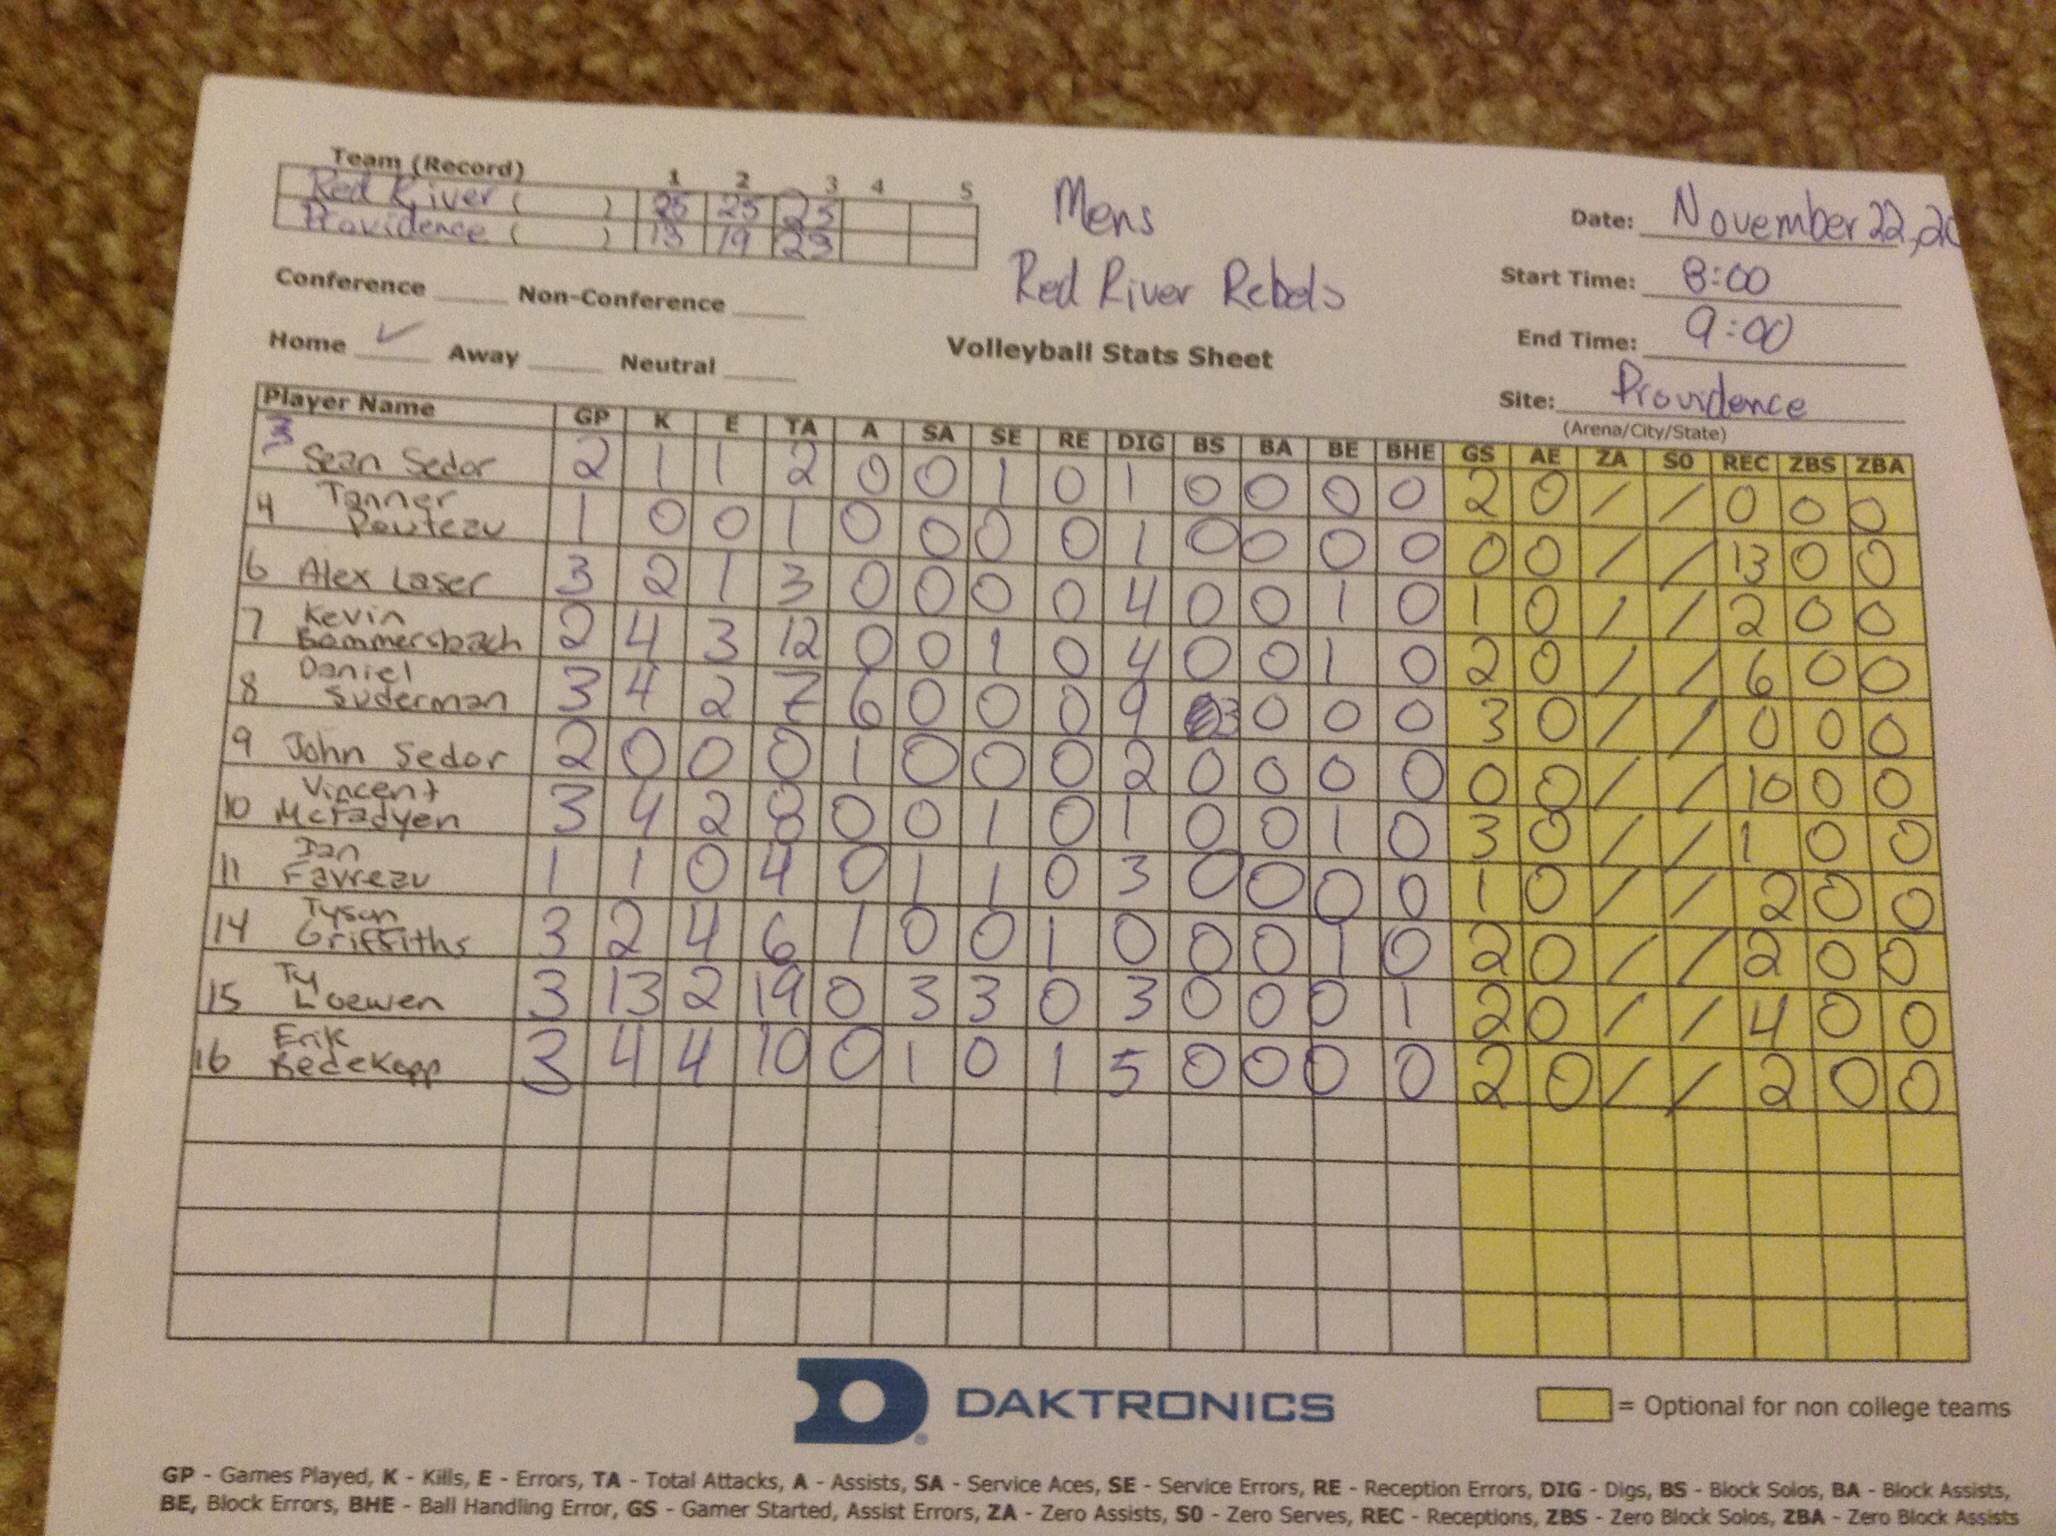 Team (Record) 1 2 3 4 5
Red River ( ) 25 25 25
Providence ( ) 13 19 23
Mens
Red River Rebels
Date: November 22, 20
Start Time: 8:00
End Time: 9:00
Site: Providence
(Arena/City/State)
Conference Non-Conference
Home ✓ Away Neutral
Volleyball Stats Sheet
Player Name GP K E TA A SA SE RE DIG BS BA BE BHE GS AE ZA SO REC ZBS ZBA
3 Sean Sedor 2 1 1 2 0 0 1 0 1 0 0 0 0 2 0 / / 0 0 0
4 Tanner Pouteau 1 0 0 1 0 0 0 0 1 0 0 0 0 0 0 / / 13 0 0
6 Alex Laser 3 2 1 3 0 0 0 0 4 0 0 1 0 1 0 / / 2 0 0
7 Kevin Bommersbach 2 4 3 12 0 0 1 0 4 0 0 1 0 2 0 / / 6 0 0
8 Daniel Suderman 3 4 2 7 6 0 0 0 9 3 0 0 0 3 0 / / 0 0 0
9 John Sedor 2 0 0 0 1 0 0 0 2 0 0 0 0 0 0 / / 10 0 0
10 Vincent McFadyen 3 4 2 8 0 0 1 0 1 0 0 1 0 3 0 / / 1 0 0
11 Ian Favreau 1 1 0 4 0 1 1 0 3 0 0 0 0 1 0 / / 2 0 0
14 Tyson Griffiths 3 2 4 6 1 0 0 1 0 0 0 1 0 2 0 / / 2 0 0
15 Ty Loewen 3 13 2 19 0 3 3 0 3 0 0 0 1 2 0 / / 4 0 0
16 Erik Redekopp 3 4 4 10 0 1 0 1 5 0 0 0 0 2 0 / / 2 0 0
DAKTRONICS
= Optional for non college teams
GP - Games Played, K - Kills, E - Errors, TA - Total Attacks, A - Assists, SA - Service Aces, SE - Service Errors, RE - Reception Errors, DIG - Digs, BS - Block Solos, BA - Block Assists,
BE, Block Errors, BHE - Ball Handling Error, GS - Gamer Started, Assist Errors, ZA - Zero Assists, S0 - Zero Serves, REC - Receptions, ZBS - Zero Block Solos, ZBA - Zero Block Assists